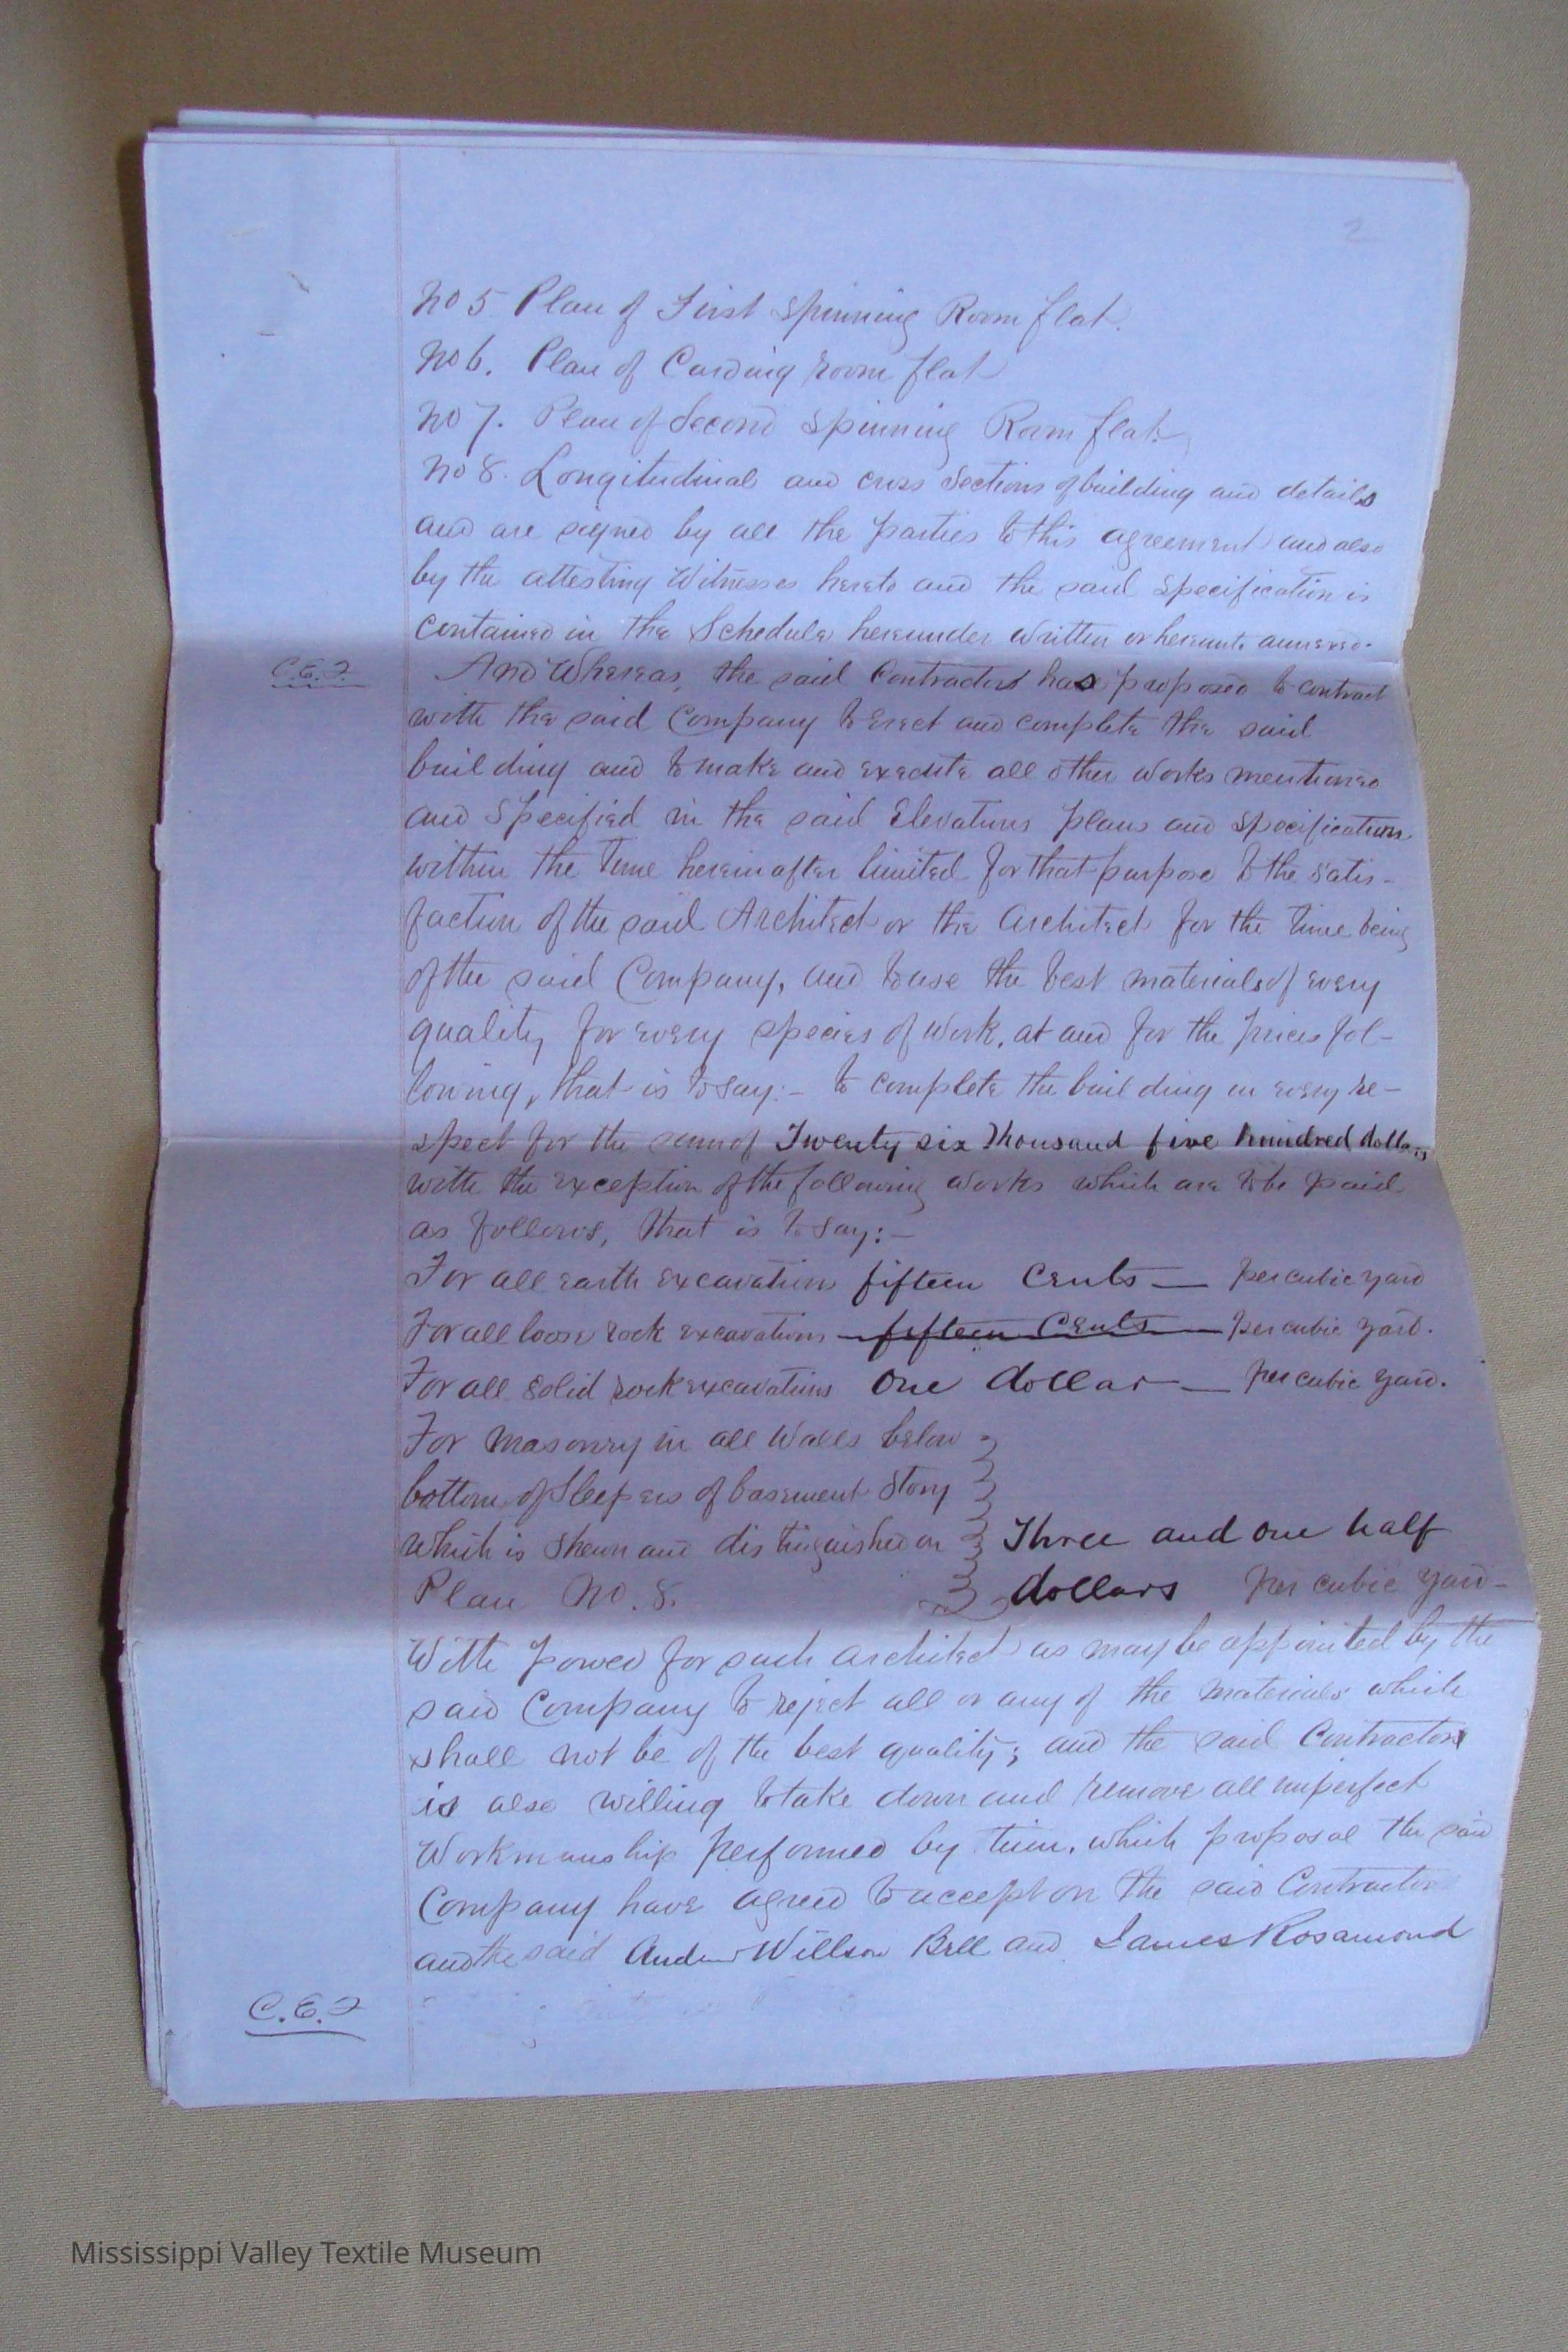 2
No 5 Plan of First Spinning Room flat.
No 6. Plan of Carding room flat
No 7. Plan of Second Spinning Room flat.
No 8. Longitudinal and cross Sections of building and details
and are signed by all the parties to this agreement and also
by the attesting Witnesses hereto and the said Specification is
contained in the Schedule hereunder written or hereunto annexed.
C.E.F.
And Whereas, the said Contractor has proposed to contract
with the said Company to Erect and complete the said
building and to make and execute all other works mentioned
and Specified in the said Elevations plans and specifications
within the time hereinafter limited for that purpose to the satis-
faction of the said Architect or the Architect for the time being
of the said Company, and to use the best materials of every
quality for every species of Work, at and for the prices fol-
lowing, that is to say:- to complete the building in every re-
spect for the sum of Twenty six Thousand five hundred dollars
with the exception of the following works which are to be paid
as follows, that is to say:-
For all earth excavations fifteen Cents — per cubic yard
For all loose rock excavations fifteen Cents per cubic yard.
For all solid rock excavations One dollar — per cubic yard.
For masonry in all Walls below
bottom of Sleepers of basement Story
which is shewn and distinguished on Three and one half
Plan No. 8. dollars per cubic yard-
With power for such architect as may be appointed by the
said Company to reject all or any of the materials which
shall not be of the best quality; and the said Contractor
is also willing to take down and remove all imperfect
Workmanship performed by him, which proposal the said
Company have agreed to accept on the said Contractor
and the said Andrew Willson Bell and James Rosamond
C.E.F
Mississippi Valley Textile Museum